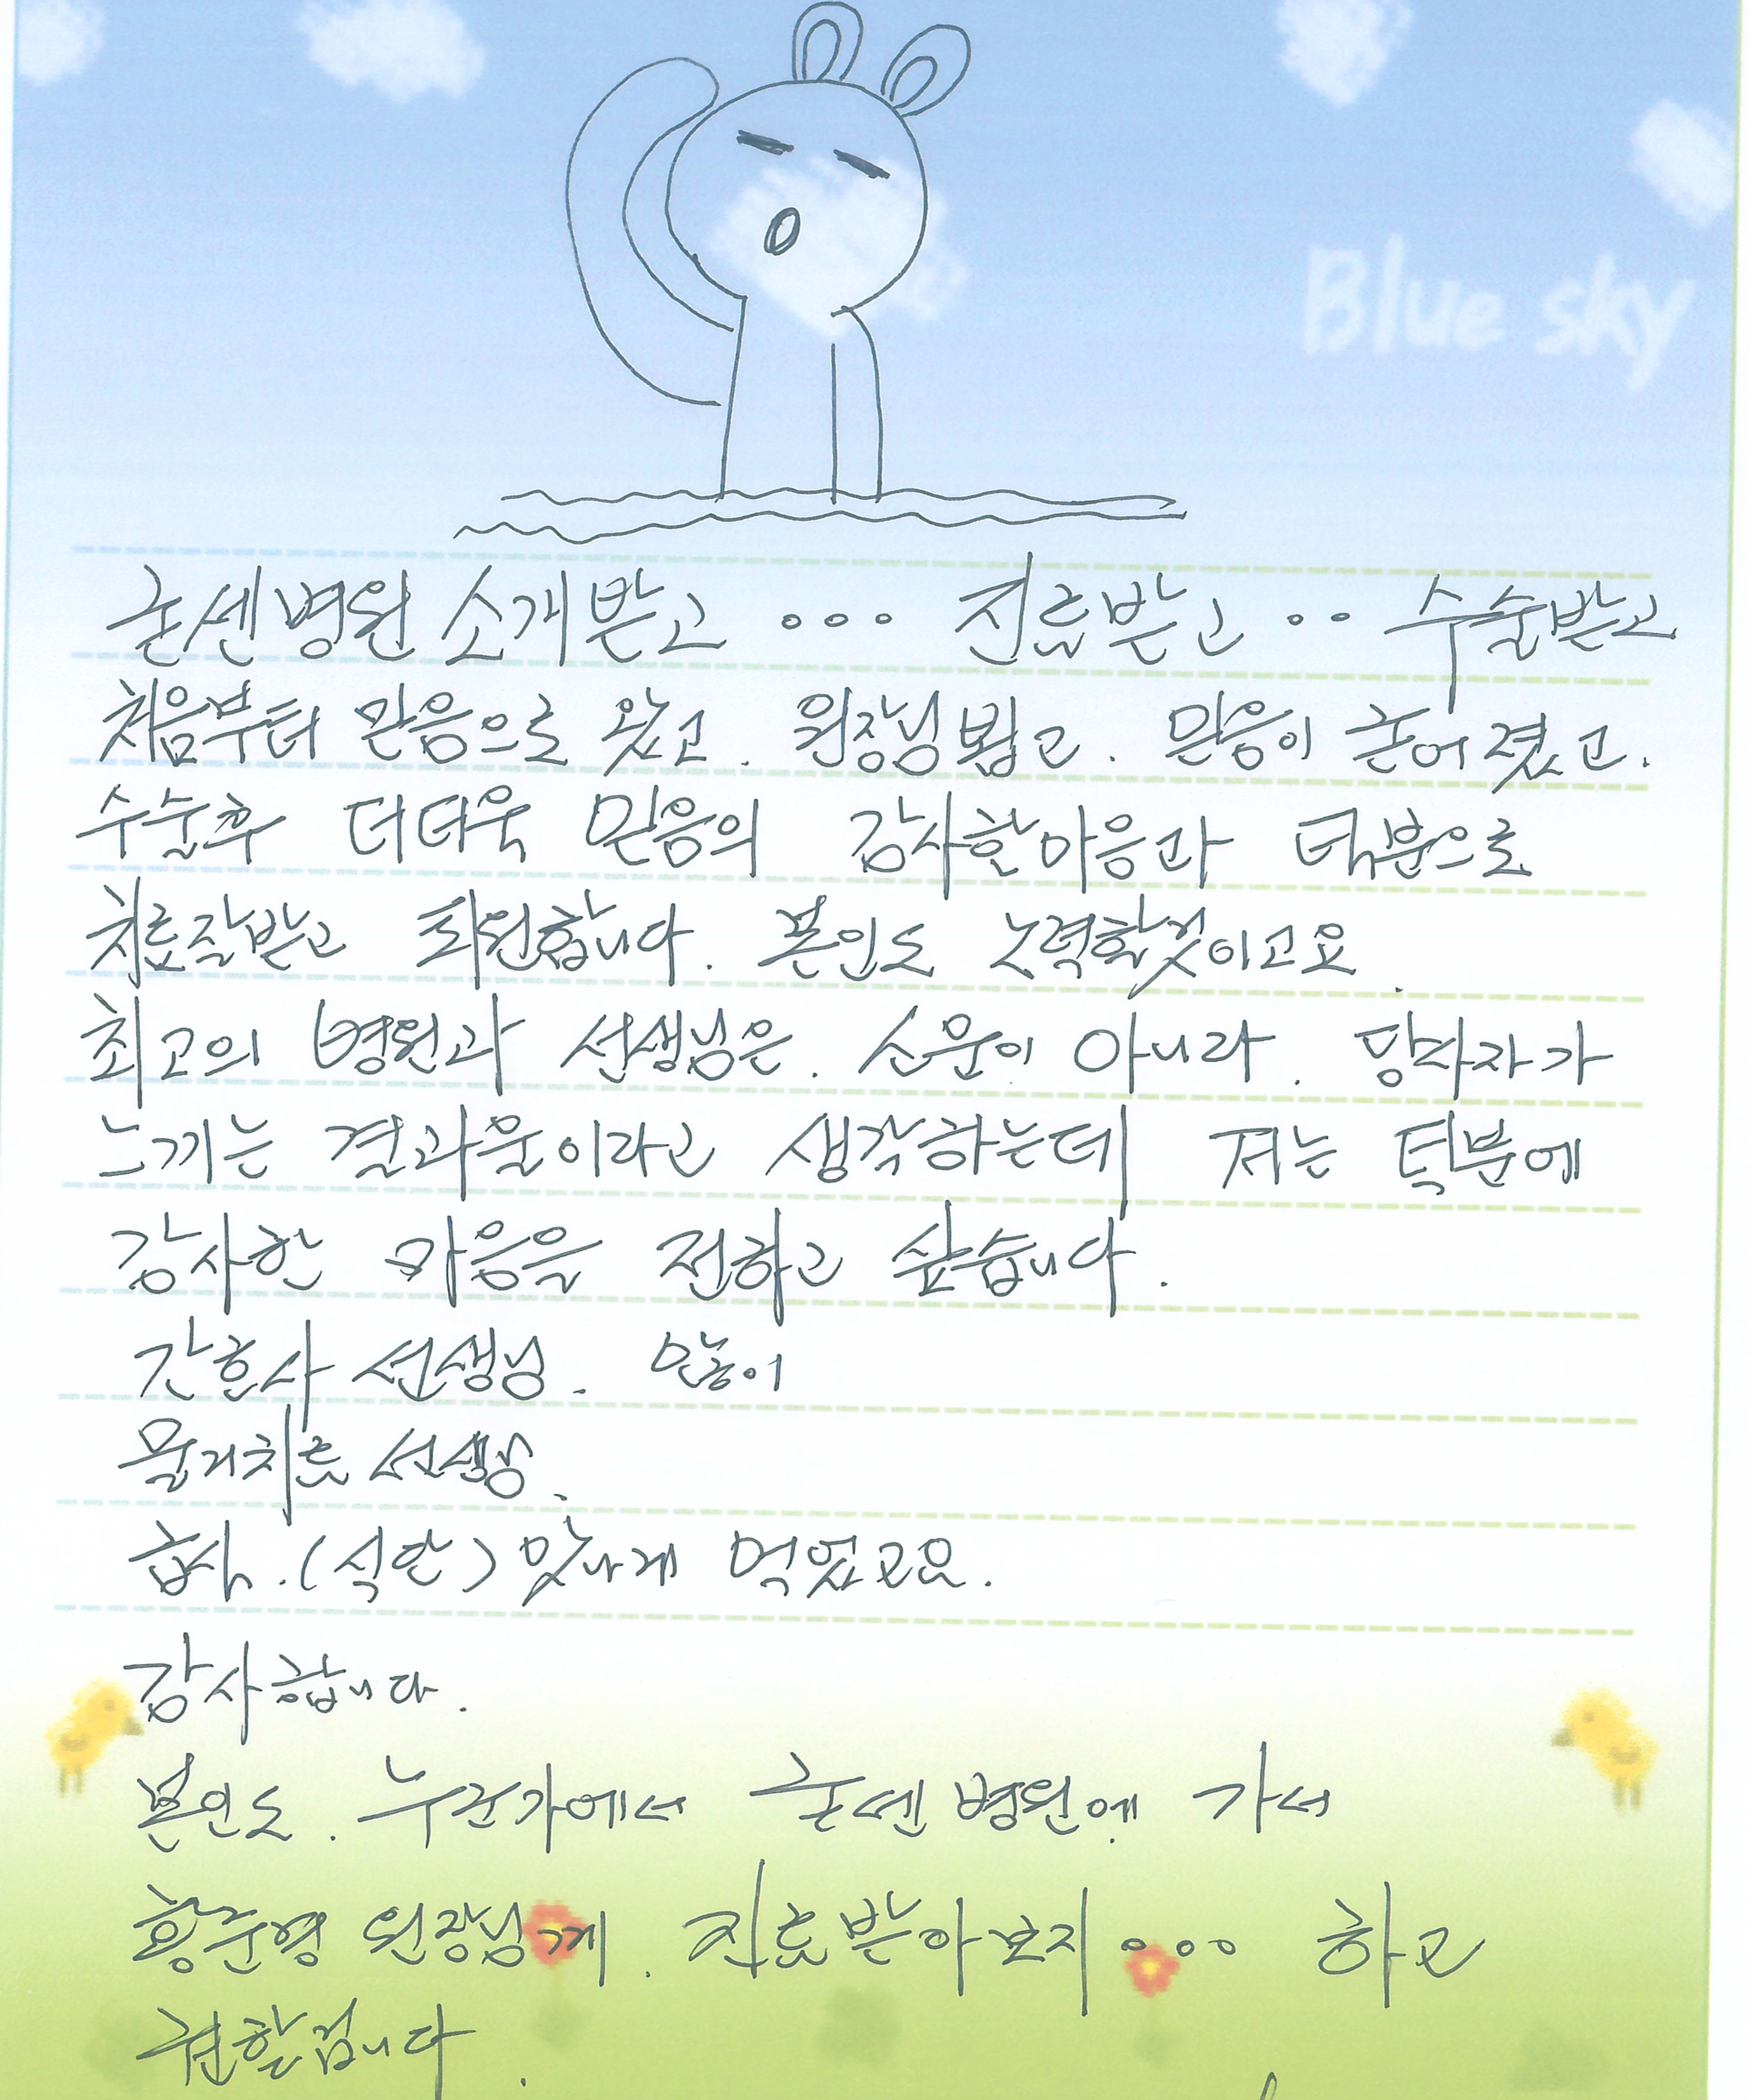 Blue sky
굳센병원 소개받고 ... 진료받고 .. 수술받고
처음부터 믿음으로 왔고. 원장님뵙고. 믿음이 굳어졌고.
수술후 더더욱 믿음의 감사한마음과 덕분으로
치료잘받고 퇴원합니다. 본인도 노력할것이고요.
최고의 병원과 선생님은. 소문이 아니라. 당사자가
느끼는 결과물이라고 생각하는데 저는 덕분에
감사한 마음을 전하고 싶습니다.
간호사 선생님. 많이
물리치료 선생님.
급식.(식단) 맛나게 먹었고요.
감사합니다.
본인도. 누군가에서 굳센병원에 가서
황준영 원장님께. 진료받아보지... 하고
권할겁니다.